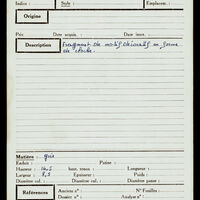 Indice : Style : Emplacem. :
Origine
Prix Date acquis. : Date inv. :
Description Fragment de motif décoratif en forme
de cloche.
Matière : gris
Enduit : Patine :
Hauteur : 14,5 haut. conso. : Longueur :
Largeur : 8,5 Epaisseur : Poids :
Diamètre col. : Diamètre panse :
Références Anciens n° : N° Fouilles :
Dossier n° : Analyse n° :